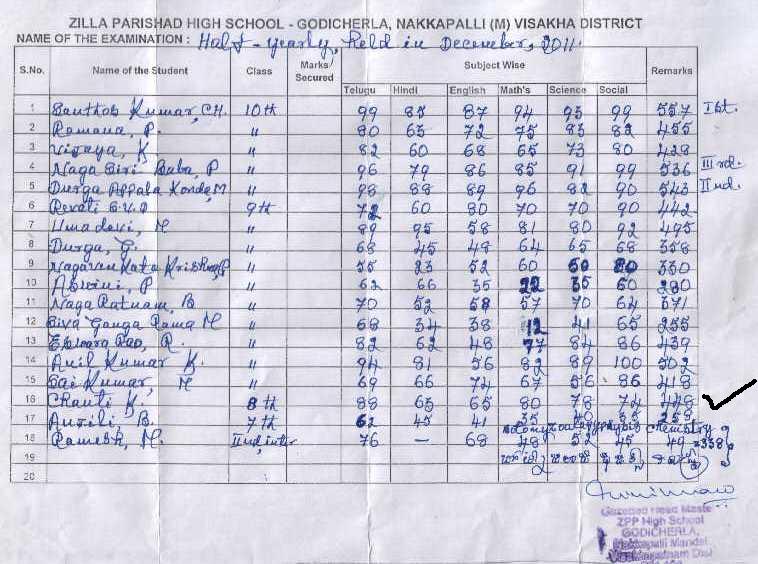 ZILLA PARISHAD HIGH SCHOOL - GODICHERLA, NAKKAPALLI (M) VISAKHA DISTRICT
NAME OF THE EXAMINATION : Half-yearly, Held in December, 2011.
S.No. Name of the Student Class Marks Secured Subject Wise Remarks
Telugu Hindi English Math's Science Social
1 Santhosh Kumar, CH. 10th 99 85 87 94 93 99 557 Ist.
2 Ramana, P. " 80 63 72 75 83 82 455
3 Vijaya, K " 82 60 68 65 73 80 428
4 Naga Siri Baba, P " 96 79 86 85 91 99 536 IIIrd.
5 Durga Appala Konda, M " 98 88 89 96 82 90 543 IInd.
6 Revati 9th 72 60 80 70 70 90 442
7 Umadevi, M " 89 95 58 81 80 92 495
8 Durga, G. " 68 45 48 64 65 68 358
9 Nagavenkata Krishna, P " 55 23 52 60 60 80 330
10 Aswini, P " 62 66 35 22 35 60 280
11 Naga Ratnam, B " 70 52 58 57 70 64 371
12 Siva Ganga Rama M " 68 34 38 12 41 65 255
13 Eswara Rao, R. " 82 62 48 77 84 86 439
14 Anil Kumar K. " 94 81 56 82 89 100 502
15 Sai Kumar, M " 69 66 74 67 56 86 418
16 Chanti K. 8th 88 63 65 80 78 74 448
17 B. 7th 62 45 41 35 40 35 258
chemistry
18 Ramesh, M. IInd inter 76 — 68 48 52 45 49 =338
19
20
Gazetted Head Maste
ZPP High School
GODICHERLA,
Nakkapalli Mandal
Visakhapatnam Dist